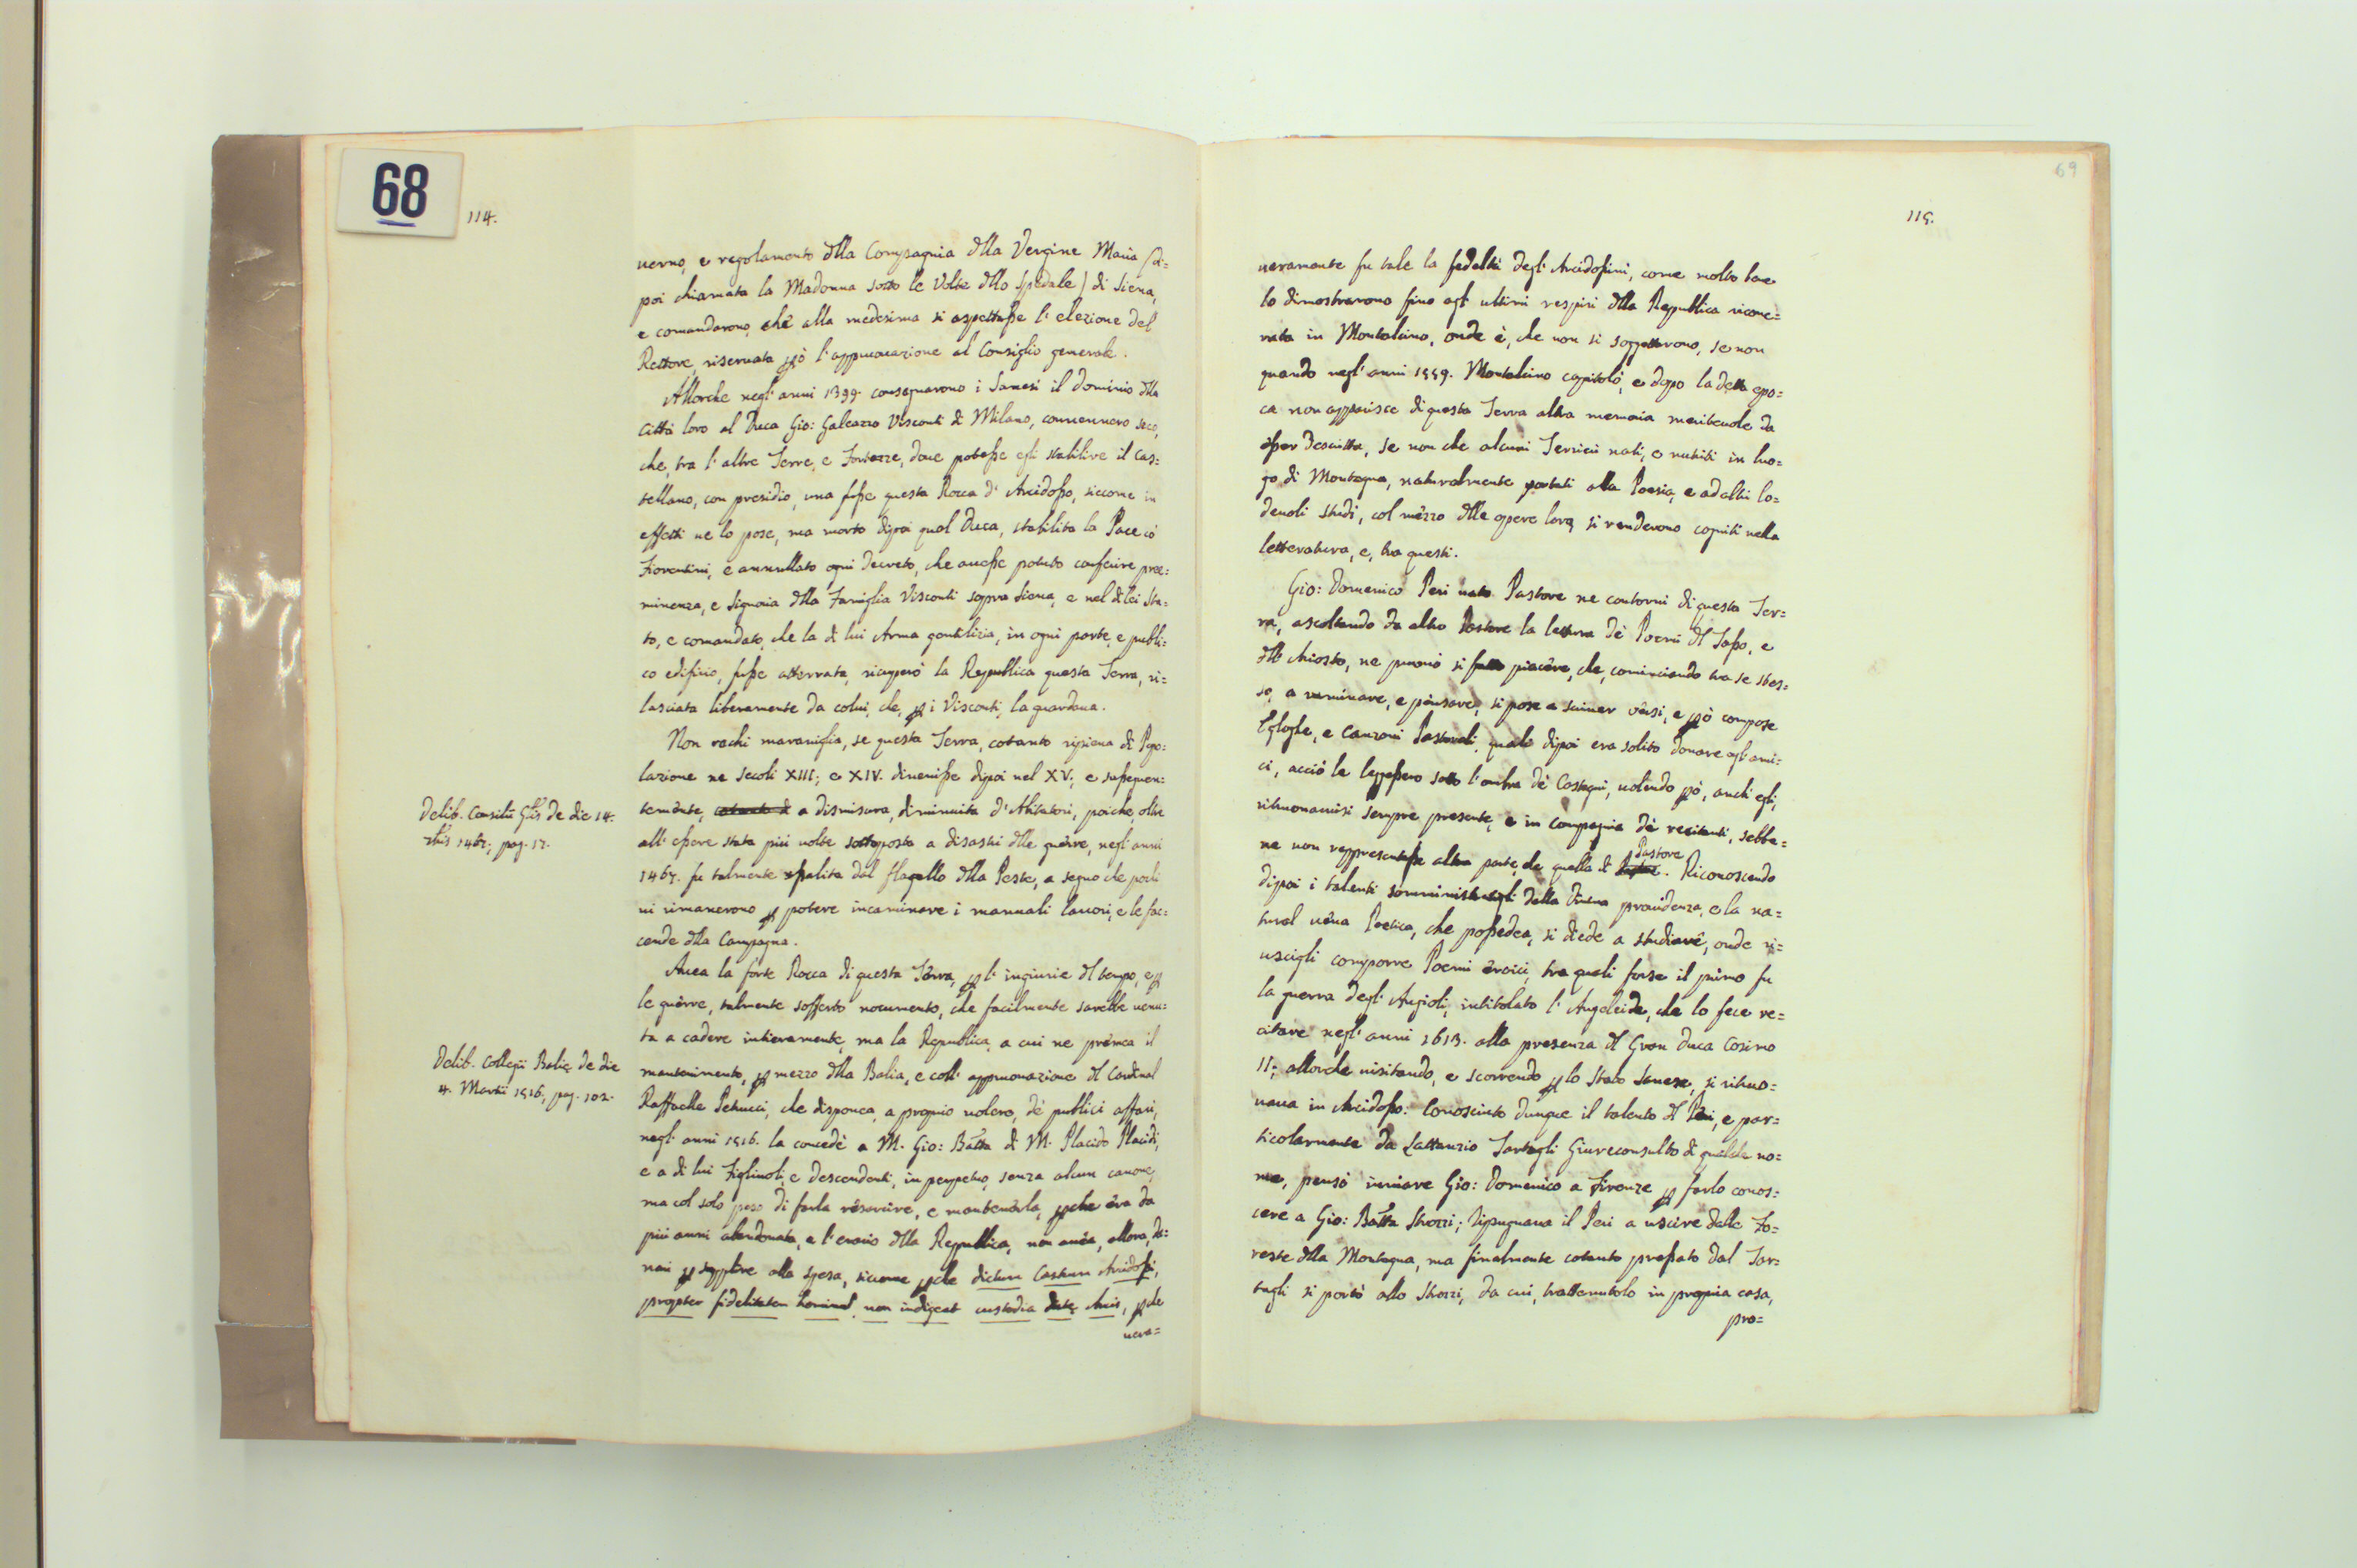 68
114.
uerno, e regolamento dlla Compagnia dlla Vergine Maria (di=
poi chiamata la Madonna sotto le Volte dllo Spedale) di Siena,
e comandarono, che alla medesima si aspettasse l'elezione del
Rettore, riseruata però l'approuazione al Consiglio generale.
Allorche negl'anni 1399. consegnarono i Sanesi il dominio dlla
Città loro al Duca Gio: Galeazzo Visconti di Milano, conuennero seco,
che, tra l'altre Terre, e Fortezze, doue potesse egli stabilire il Cas=
tellano, con presidio, una fusse questa Rocca d'Arcidosso, siccome in
effetti ue lo pose, ma morto dipoi quel Duca, stabilita la Pace cò
Fiorentini, e annullato ogni decreto, che auesse potuto conferire pree=
minenza, e Signoria dlla Famiglia Visconti sopra Siena, e nel di lei Sta=
to, e comandato, che la di lui Arma gentilizia, in ogni parte, e publi=
co edifizio, fusse atterrata, ricuperò la Republica questa Terra, ri=
lasciata liberamente da colui, che, per i Visconti, la guardaua.
Non rechi marauiglia, se questa Terra, cotanto ripiena di Popo=
lazione ne Secoli XIII; e XIV. diuenisse dipoi nel XV; e susseguen=
temente, a dismisura, diminuita d'Abitatori, poiche, oltre
all'essere stata più uolte sottoposta a disastri dlle guerre, negl'anni
1467. fu talmente assalita dal flagello dlla Peste, a segno che pochi
ui rimanerono per potere incaminare i manuali lauori, e le fac=
cende dlla Campagna.
Delib. Consilii Glis de die 14.
1467; pag. 17.
Auea la forte Rocca di questa Terra, per l'ingiurie dl tempo, e per
le guerre, talmente sofferto nocumento, che facilmente sarebbe uenu=
ta a cadere intieramente, ma la Republica, a cui ne premea il
mantenimento, per mezzo dlla Balìa, e coll'approuazione dl Cardinal
Raffaelle Petrucci, che disponea, a proprio uolere, dè publici affari,
negl'anni 1516. la concedè a M. Gio: Batta di M. Placido Placidi,
e a di lui Figliuoli, e Descendenti, in perpetuo, senza alcun canone,
ma col solo peso di farla risarcire, e mantenerla, perche era da
più anni abandonata, e l'erario dlla Republica, non auea, allora, de=
nari per supplire alla spesa, siccome perche dictum Castrum Arcidossi,
propter fidelitatem hominum non indigeat custodia dictę Arcis, perche
uera=
Delib. Collegii Balię de die
4. Martii 1516, pag. 102.
69
115.
ueramente fu tale la fedeltà degl'Arcidossini, come molto bene
lo dimostrarono fino agl'ultimi respiri dlla Republica ricoue=
rata in Montalcino, onde è, che non si soggettarono, se non
quando negl'anni 1559. Montalcino capitolò, e dopo la detta epo=
ca non apparisce di questa Terra altra memoria meriteuole da
esser descritta, se non che alcuni Terrieri nati, e nutriti in luo=
go di Montagna, naturalmente portati alla Poesia, e ad altri lo=
deuoli studi, col mezzo dlle opere loro, si renderono cogniti nella
letteratura, e, tra questi.
Gio: Domenico Peri nato Pastore ne contorni di questa Ter=
ra, ascoltando da altro Pastore la lettura dè Poemi dl Tasso, e
dll'Ariosto, ne prouò sì fatto piacere, che, cominciando tra se stes=
so, a ruminare, e pensare, si pose a scriuer versi, e però compose
Egloghe, e Canzoni Pastorali, quali dipoi era solito donare agl'ami=
ci, acciò le leggessero sotto l'ombra dè Castagni, uolendo però, anch'egli,
ritrouaruisi sempre presente, e in compagnia dè recitanti, sebbe=
ne non rappresentasse altra parte, che quella di Pastore. Riconoscendo
dipoi i talenti somministratigli dalla Diuina prouidenza, e la na=
tural uena Poetica, che possedea, si diede a studiare, onde ri=
uscigli comporre Poemi eroici, tra quali forse il primo fu
la guerra degl'Angioli, intitolato l'Angeleide, che lo fece re=
citare negl'anni 1613. alla presenza dl Gran Duca Cosimo
II; allorche uisitando, e scorrendo per lo Stato Sanese, si ritro=
uaua in Arcidosso. Conosciuto dunque il talento dl Peri, e par=
ticolarmente da Lattanzio Tartagli Giureconsulto di qualche no=
me, pensò inuiare Gio: Domenico a Firenze per farlo conos=
cere a Gio: Batta Strozzi; Ripugnaua il Peri a uscire dalle Fo=
reste dlla Montagna, ma finalmente cotanto pressato dal Tar=
tagli si portò allo Strozzi, da cui, trattenutolo in propria casa,
pro=